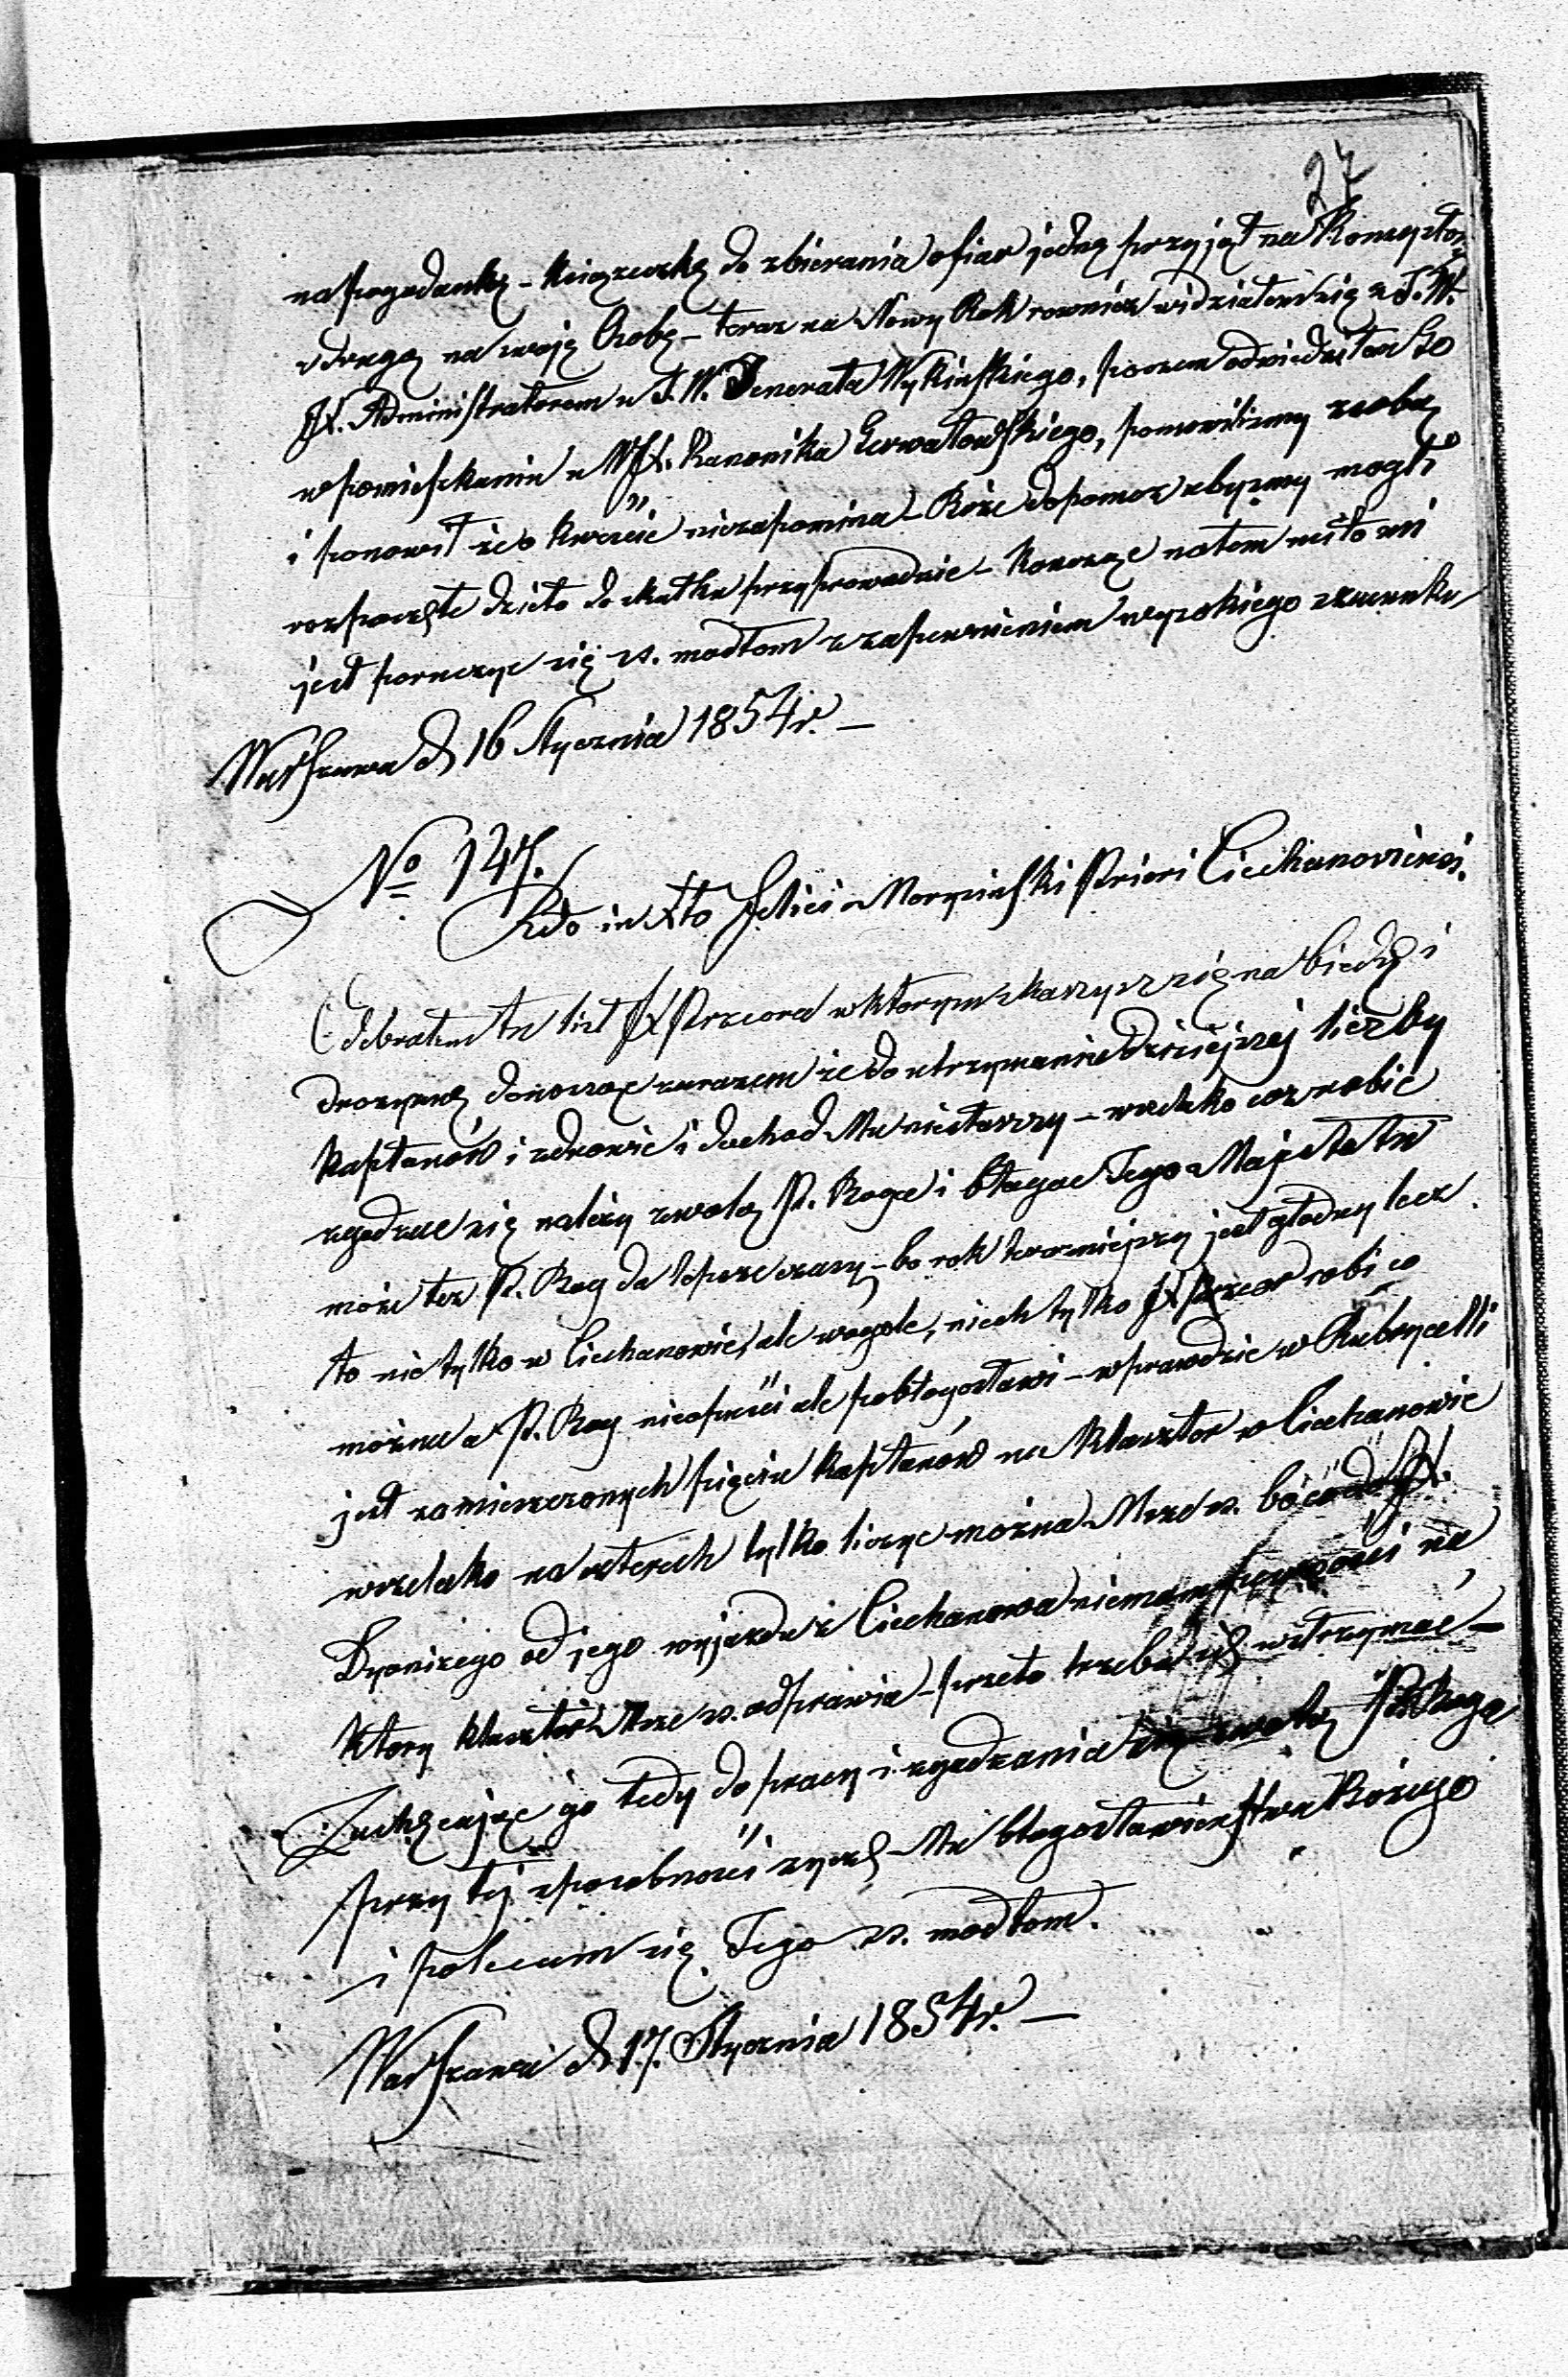 27
na pogadankę - książeczkę do zbierania ofiar jednę przyjął na Konsystorz
a drugą na swoję Osobę - teraz na Nowy Rok rownież widziałem się z J.W.
JX. Administratorem u J.W. Jenerała Wykińskiego, poczem odwiedziłem Go
w pomieszkaniu u WJX. Kanonika Zerwatowskiego, pomowiliśmy z sobą
i ponowił że o kweście niezapomina - Boże dopomoż abyśmy mogli
rozpoczęte dzieło do skutku przyprowadzić - Konoząc na tem miło mi
jest poruczyć się ss. modłom z zapewnieniem wysokiego szacunku
Warszawa d. 16 Stycznia 1854 r. -
No 147.
Rdo in Xto Felici Moryciński Priori Ciechanoviensi.
Odebrałem tu list JX Przeora w ktorym skarzysz się na biedę i
drożyznę donosząc zarazem że do utrzymania dzisiejszej liczby
Kapłanów i zdrowie i dochod Mu niestarczy - wszelako coż robić
zgadzać się należy z wolą P. Boga i błagać Jego Majestatu
może też P. Bog da lepsze czasy - bo rok terazniejszy jest głodny lecz
to nie tylko w Ciechanowie, ale wogole, niech tylko JX Przeor robi co
można a P. Bog nieopuści ale pobłogosławi - wprawdzie w Rubrycelli
jest zamieszczonych pięciu Kapłanów na Klasztor w Ciechanowie
wszelako na czterech tylko liczyć można Msze ss. bo co do JX.
Dyonizego od jego wyjazdu z Ciechanowa niemam pewności na
ktory klasztor Msze ss. odprawia - przeto trzeba ich wstrzymać -
Zachęcając go tedy do pracy i zgadzania się z wolą P. Boga
przy tej sposobności życzę Mu błogosławieństwa Bożego
i polecam się Jego ss. modłom.
Warszawa d. 17. Stycznia 1854 r. -